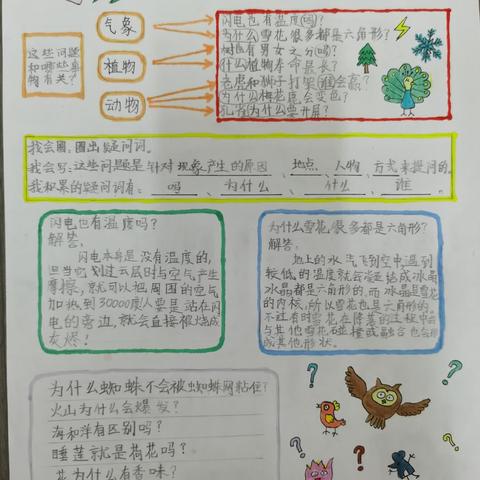 这些问题
和哪些事
物有关？
气象
植物
动物
闪电也有温度吗？
为什么雪花很多都是六角形？
树也有男女之分吗？
什么植物寿命最长？
老虎和狮子打架谁会赢？
为什么梅花鹿会变色？
孔雀为什么要开屏？
我会圈，圈出疑问词。
我会写：这些问题是针对现象产生的原因、地点、人物、方式来提问的。
我积累的疑问词有：吗、为什么、什么、谁。
闪电也有温度吗？
解答：
闪电本身是没有温度的，
但当它划过云层时与空气产生
摩擦，就可以把周围的空气
加热到30000度人要是站在闪
电的旁边，就会直接被烧成
灰烬！
为什么雪花很多都是六角形？
解答：
地上的水汽飞到空中遇到
较低的温度就会凝结成冰晶
水晶都是六角形的，而冰晶是雪花
的内核，所以雪花也是六角形的。
不过有时雪花在降落的过程中
与其他雪花碰撞或融合也会形
成其他形状。
为什么蜘蛛不会被蜘蛛网粘住？
火山为什么会爆发？
海和洋有区别吗？
睡莲就是荷花吗？
花为什么有香味？